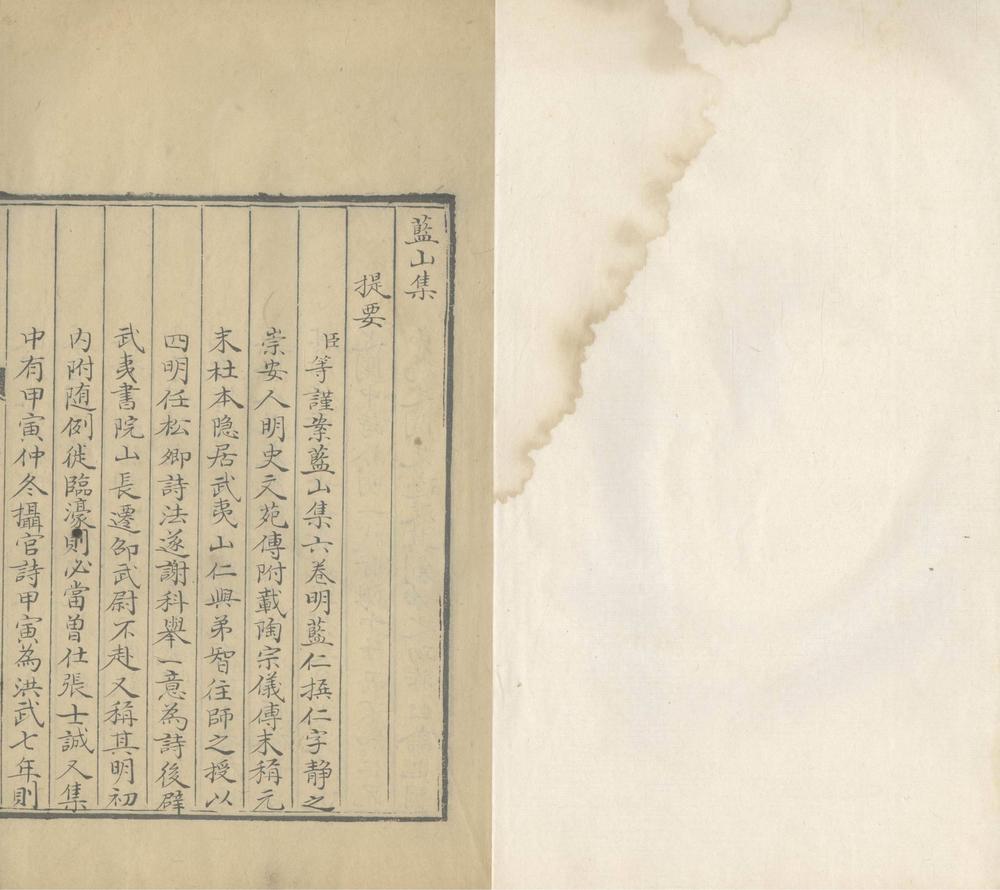 藍山集
提要
臣等謹案藍山集六卷明藍仁撰仁字静之
崇安人明史文苑傳附載陶宗儀傳末稱元
末杜本隱居武夷山仁與弟智往師之授以
四明任松卿詩法遂謝科舉一意為詩後辟
武夷書院山長遷邵武尉不赴又稱其明初
内附随例徙臨濠則必當曽仕張士誠又集
中有甲寅仲冬攝官詩甲寅為洪武七年則